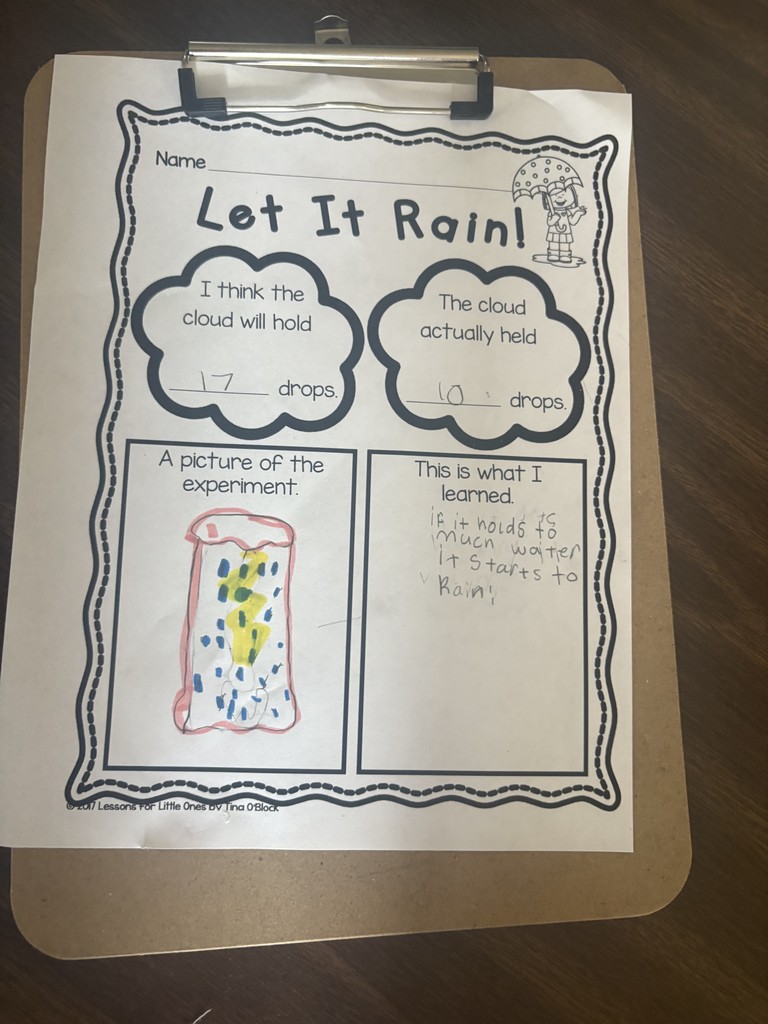 Name
Let It Rain!
I think the
cloud will hold
17 drops.
The cloud
actually held
10 drops.
A picture of the
experiment.
This is what I
learned.
if it holds to
much water
it starts to
Rain!
© 2017 Lessons For Little Ones by Tina O'Block